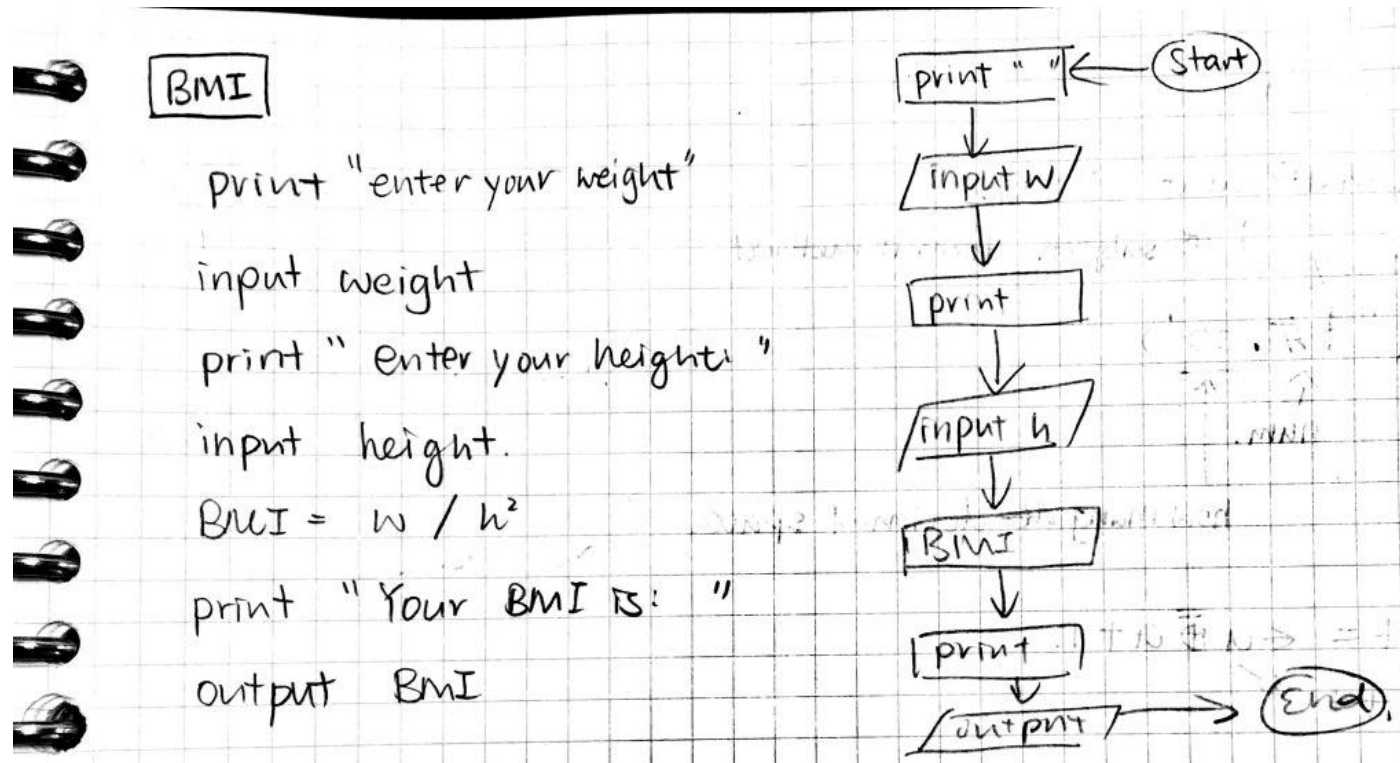 BMI
print "enter your weight"
input weight
print "enter your height: "
input height.
BMI = w / h²
print "Your BMI is: "
output BMI
Start
print " "
input w
print
input h
BMI
print
output
End
num.